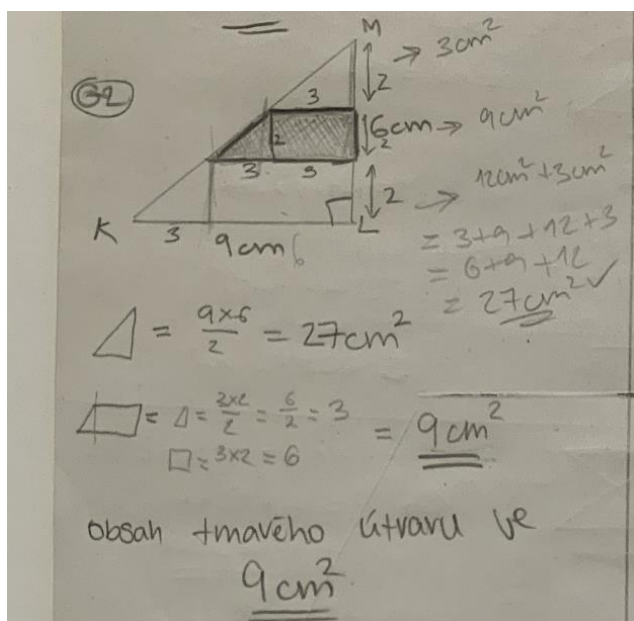 M
→ 3cm²
32
3
2
2
6cm → 9cm²
2
3
3
2 → 12cm² + 3cm²
K
L
3
9cm
6
= 3+9+12+3
= 6+9+12
= 27cm² ✓
= 9×6/2 = 27cm²
= = 3×2/2 = 6/2 = 3
= 3×2 = 6
= 9cm²
obsah tmavého útvaru ve
9cm²